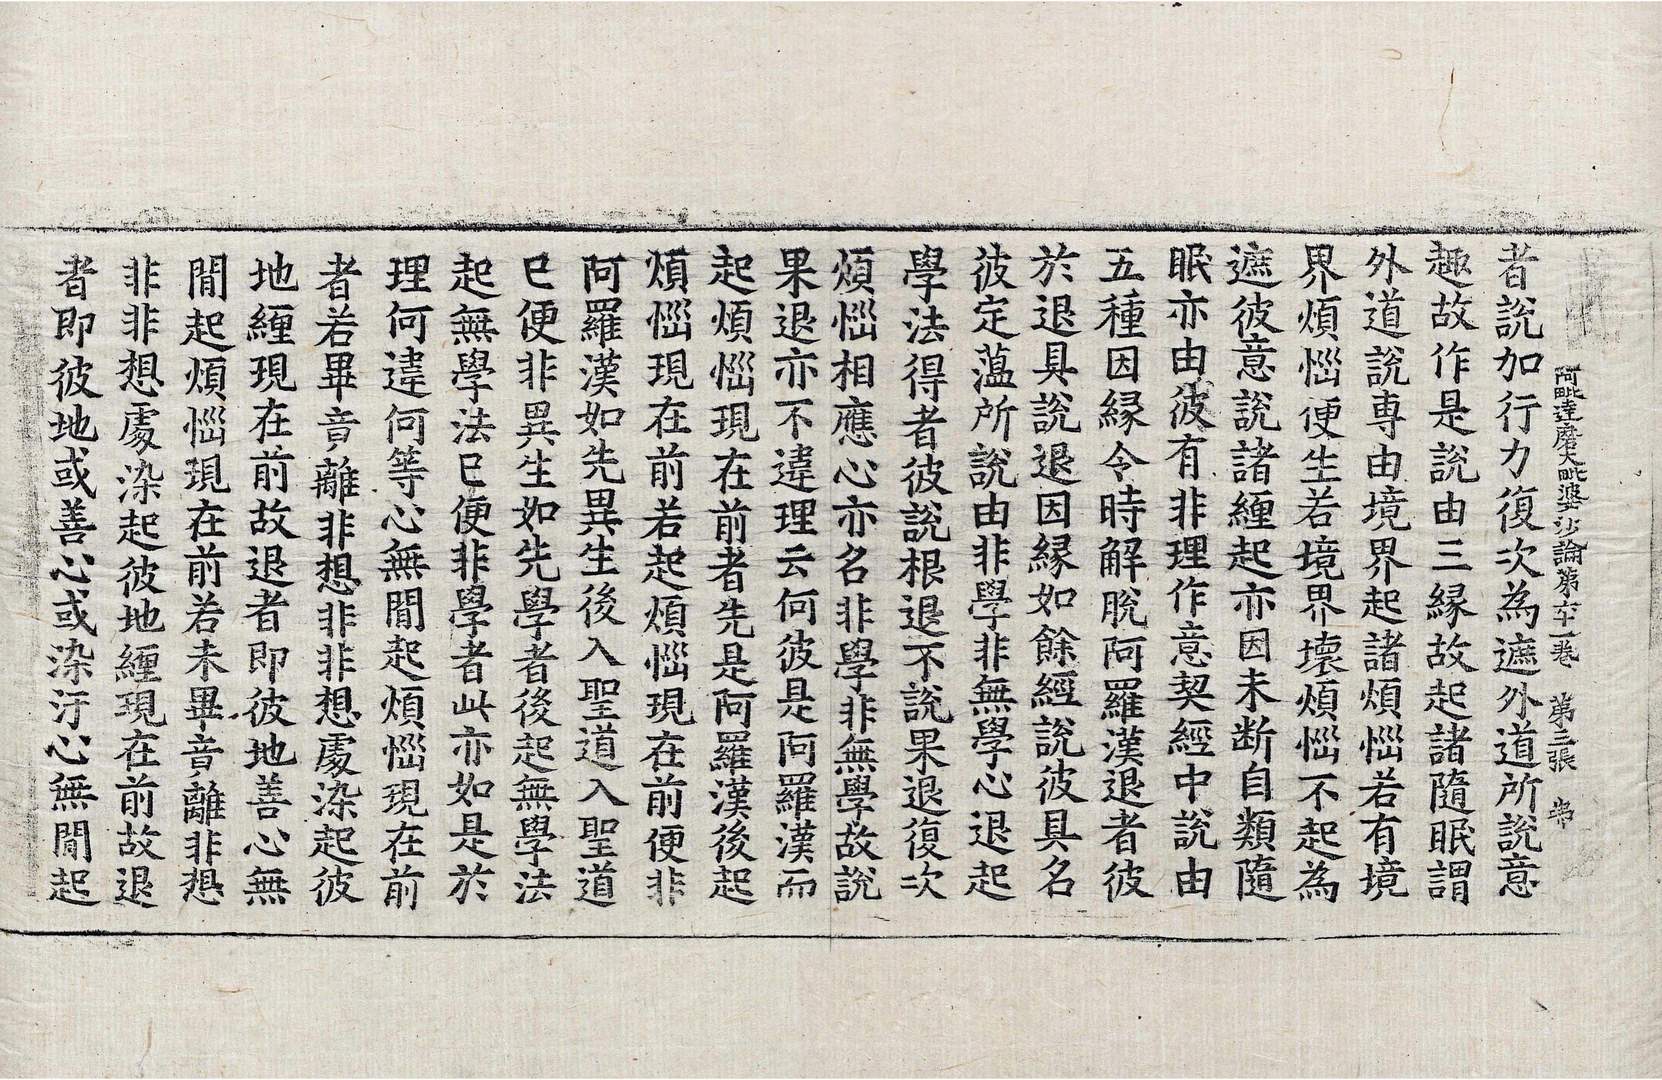 阿毗達磨大毗婆沙論第六十一卷　第三張　弗
者說加行力復次為遮外道所說意
趣故作是說由三縁故起諸隨眠謂
外道說專由境界起諸煩惱若有境
界煩惱便生若境界壞煩惱不起為
遮彼意說諸纏起亦因未断自類隨
眠亦由彼有非理作意契經中說由
五種因縁令時解脫阿羅漢退者彼
於退具說退因縁如餘經說彼具名
彼定薀所說由非學非無學心退起
學法得者彼說根退不說果退復次
煩惱相應心亦名非學非無學故說
果退亦不違理云何彼是阿羅漢而
起煩惱現在前者先是阿羅漢後起
煩惱現在前若起煩惱現在前便非
阿羅漢如先異生後入聖道入聖道
已便非異生如先學者後起無學法
起無學法已便非學者此亦如是於
理何違何等心無間起煩惱現在前
者若畢竟離非想非非想處染起彼
地纏現在前故退者即彼地善心無
間起煩惱現在前若未畢竟離非想
非非想處染起彼地纏現在前故退
者即彼地或善心或染汙心無間起